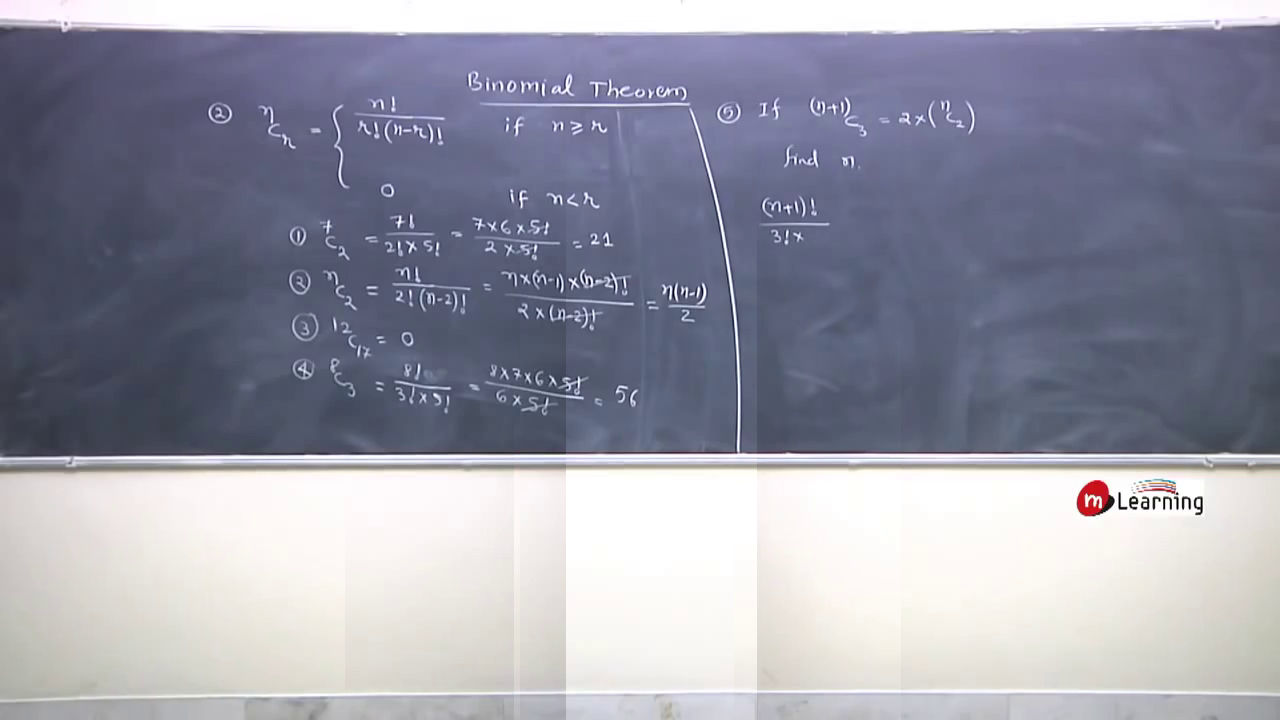 Binomial Theorem
② ⁿCᵣ = { n! / r!(n-r)! if n ≥ r
0 if n < r
① ⁷C₂ = 7! / 2! × 5! = 7 × 6 × 5! / 2 × 5! = 21
② ⁿC₂ = n! / 2! (n-2)! = n × (n-1) × (n-2)! / 2 × (n-2)! = n(n-1) / 2
③ ¹²C₁₇ = 0
④ ⁸C₃ = 8! / 3! × 5! = 8 × 7 × 6 × 5! / 6 × 5! = 56
⑤ If ⁽ⁿ⁺¹⁾C₃ = 2 × (ⁿC₂)
find n.
(n+1)! / 3! ×
m Learning